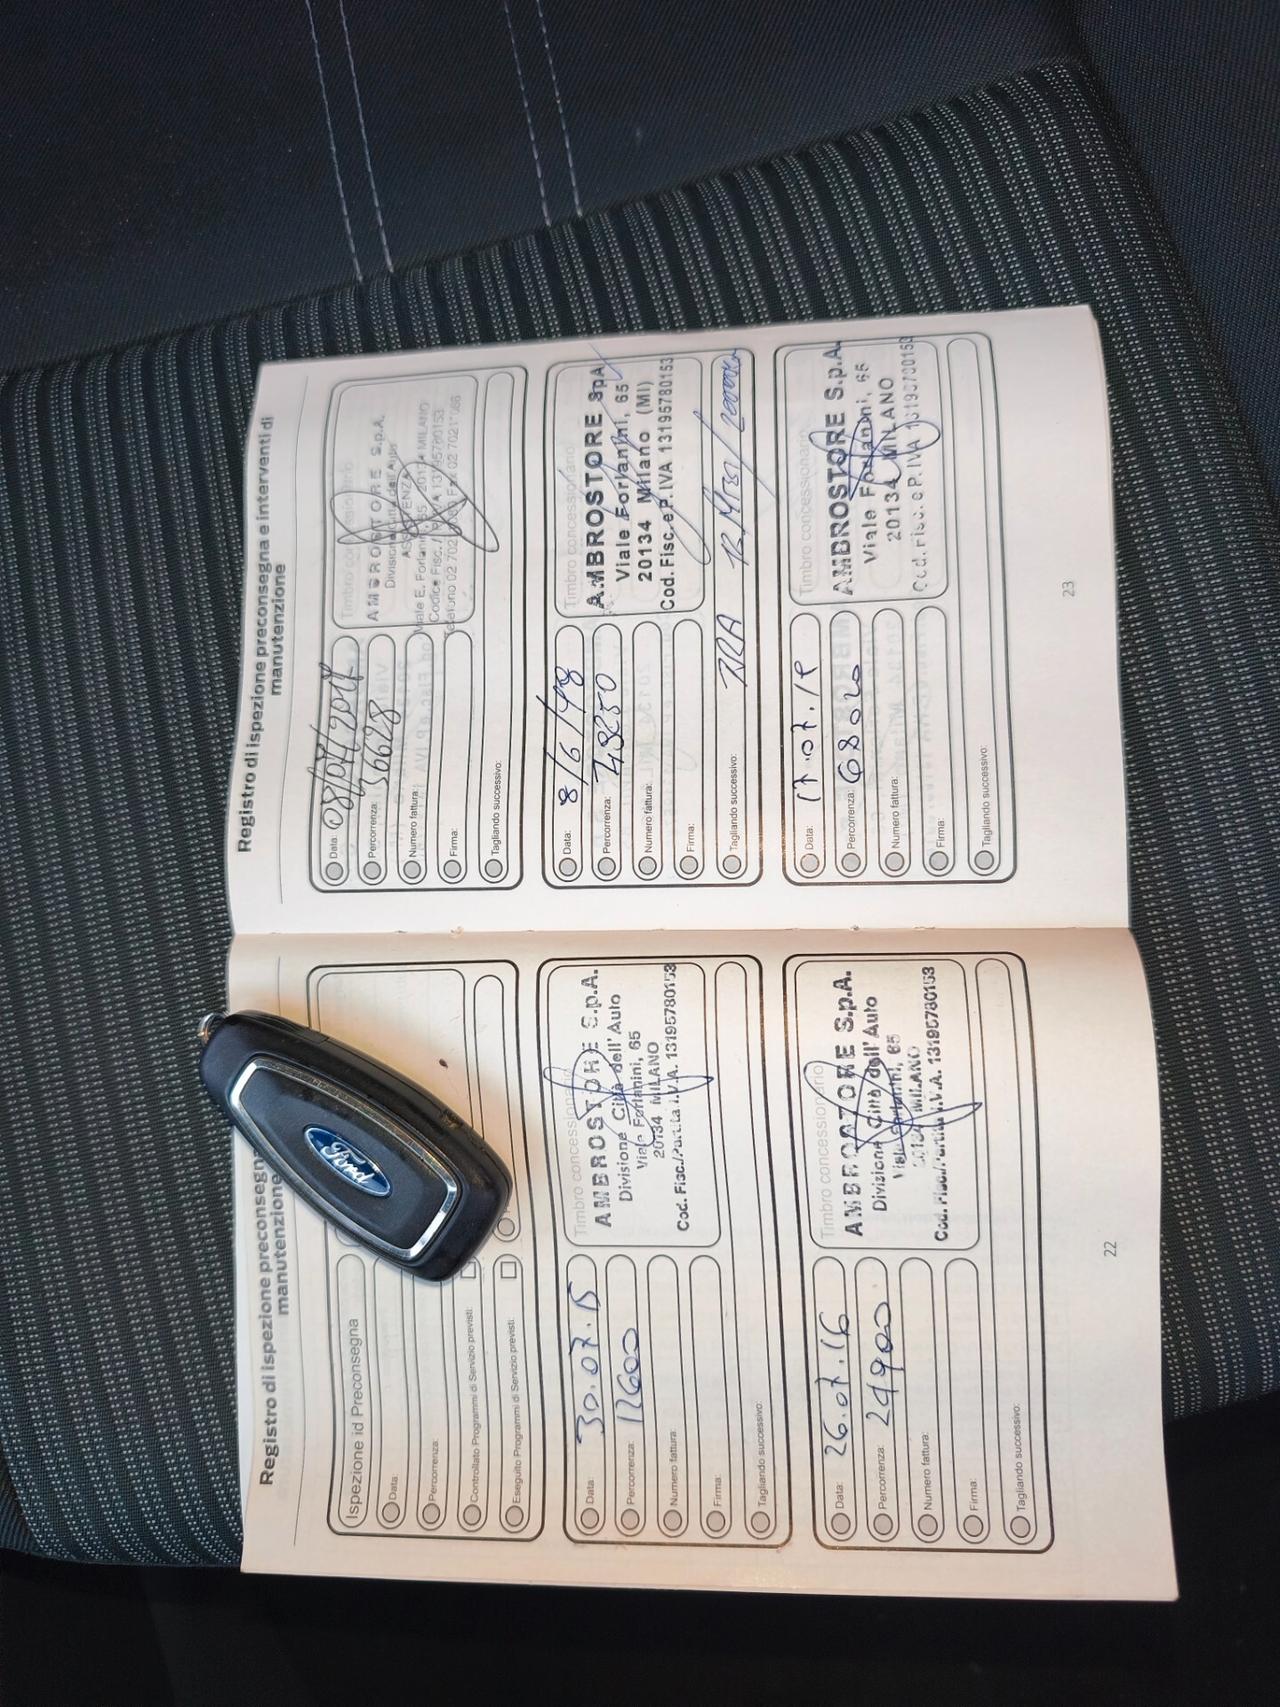 Registro di ispezione preconsegna
manutenzione
Ispezione id Preconsegna
Data:
Percorrenza:
Controllato Programmi di Servizio previsti:
Eseguito Programmi di Servizio previsti:
Ford
Data: 30.07.15
Percorrenza: 12600
Numero fattura:
Firma:
Tagliando successivo:
Timbro concessionario
AMBROSTORE S.p.A.
Divisione Città dell'Auto
Viale Forlanini, 65
20134 MILANO
Cod. Fisc./Partita I.V.A. 13195780153
Data: 26.07.16
Percorrenza: 24900
Numero fattura:
Firma:
Tagliando successivo:
Timbro concessionario
S.p.A.
Divisione Città dell'Auto
Viale Forlanini, 65
20134 MILANO
Cod. Fisc./Partita I.V.A. 13195780153
22
Registro di ispezione preconsegna e interventi di
manutenzione
Data:
Percorrenza: 36628
Numero fattura:
Firma:
Tagliando successivo:
Timbro concessionario
AMBROSTORE S.p.A.
Divisione Città dell'Auto
ASSISTENZA
Viale E. Forlanini, 65 20134 MILANO
Codice Fisc. / P. IVA 13195780153
Data: 8/6/18
Percorrenza:
Numero fattura:
Firma:
Tagliando successivo:
Timbro concessionario
AMBROSTORE SpA
Viale Forlanini, 65
20134 Milano (MI)
Cod. Fisc. e P. IVA 13195780153
Data: 17.07.19
Percorrenza: 68020
Numero fattura:
Firma:
Tagliando successivo:
Timbro concessionario
AMBROSTORE S.p.A.
Viale Forlanini, 65
20134 MILANO
Cod. Fisc. e P. IVA 13195780153
23